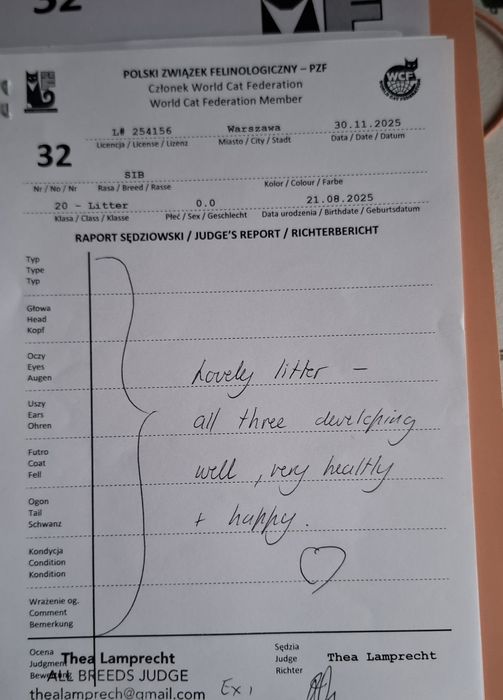 32
POLSKI ZWIĄZEK FELINOLOGICZNY – PZF
Członek World Cat Federation
World Cat Federation Member
WCF
L# 254156 Warszawa 30.11.2025
Licencja / License / Lizenz Miasto / City / Stadt Data / Date / Datum
32
SIB
Nr / No / Nr Rasa / Breed / Rasse Kolor / Colour / Farbe
20 - Litter 0.0 21.08.2025
Klasa / Class / Klasse Płeć / Sex / Geschlecht Data urodzenia / Birthdate / Geburtsdatum
RAPORT SĘDZIOWSKI / JUDGE'S REPORT / RICHTERBERICHT
Typ
Type
Typ
Głowa
Head
Kopf
Oczy
Eyes
Augen
Uszy
Ears
Ohren
Futro
Coat
Fell
Ogon
Tail
Schwanz
Kondycja
Condition
Kondition
Wrażenie og.
Comment
Bemerkung
Lovely litter –
all three developing
well, very healthy
+ happy.
Ocena
Judgment
Thea Lamprecht
ALL BREEDS JUDGE
thealamprech@gmail.com
Ex 1
Sędzia
Judge
Richter
Thea Lamprecht